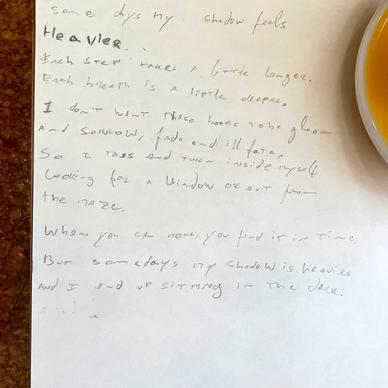 Some days my shadow feels
Heavier...
Each step takes a little longer.
Each breath is a little deeper.
I don't want these books to be gloom
and sorrow, fado and ill fate,
So I toss and turn inside myself
looking for a window or exit from
the maze.
When you can move, you find it in time.
But some days my shadow is heavier
and I end up sitting in the dark.